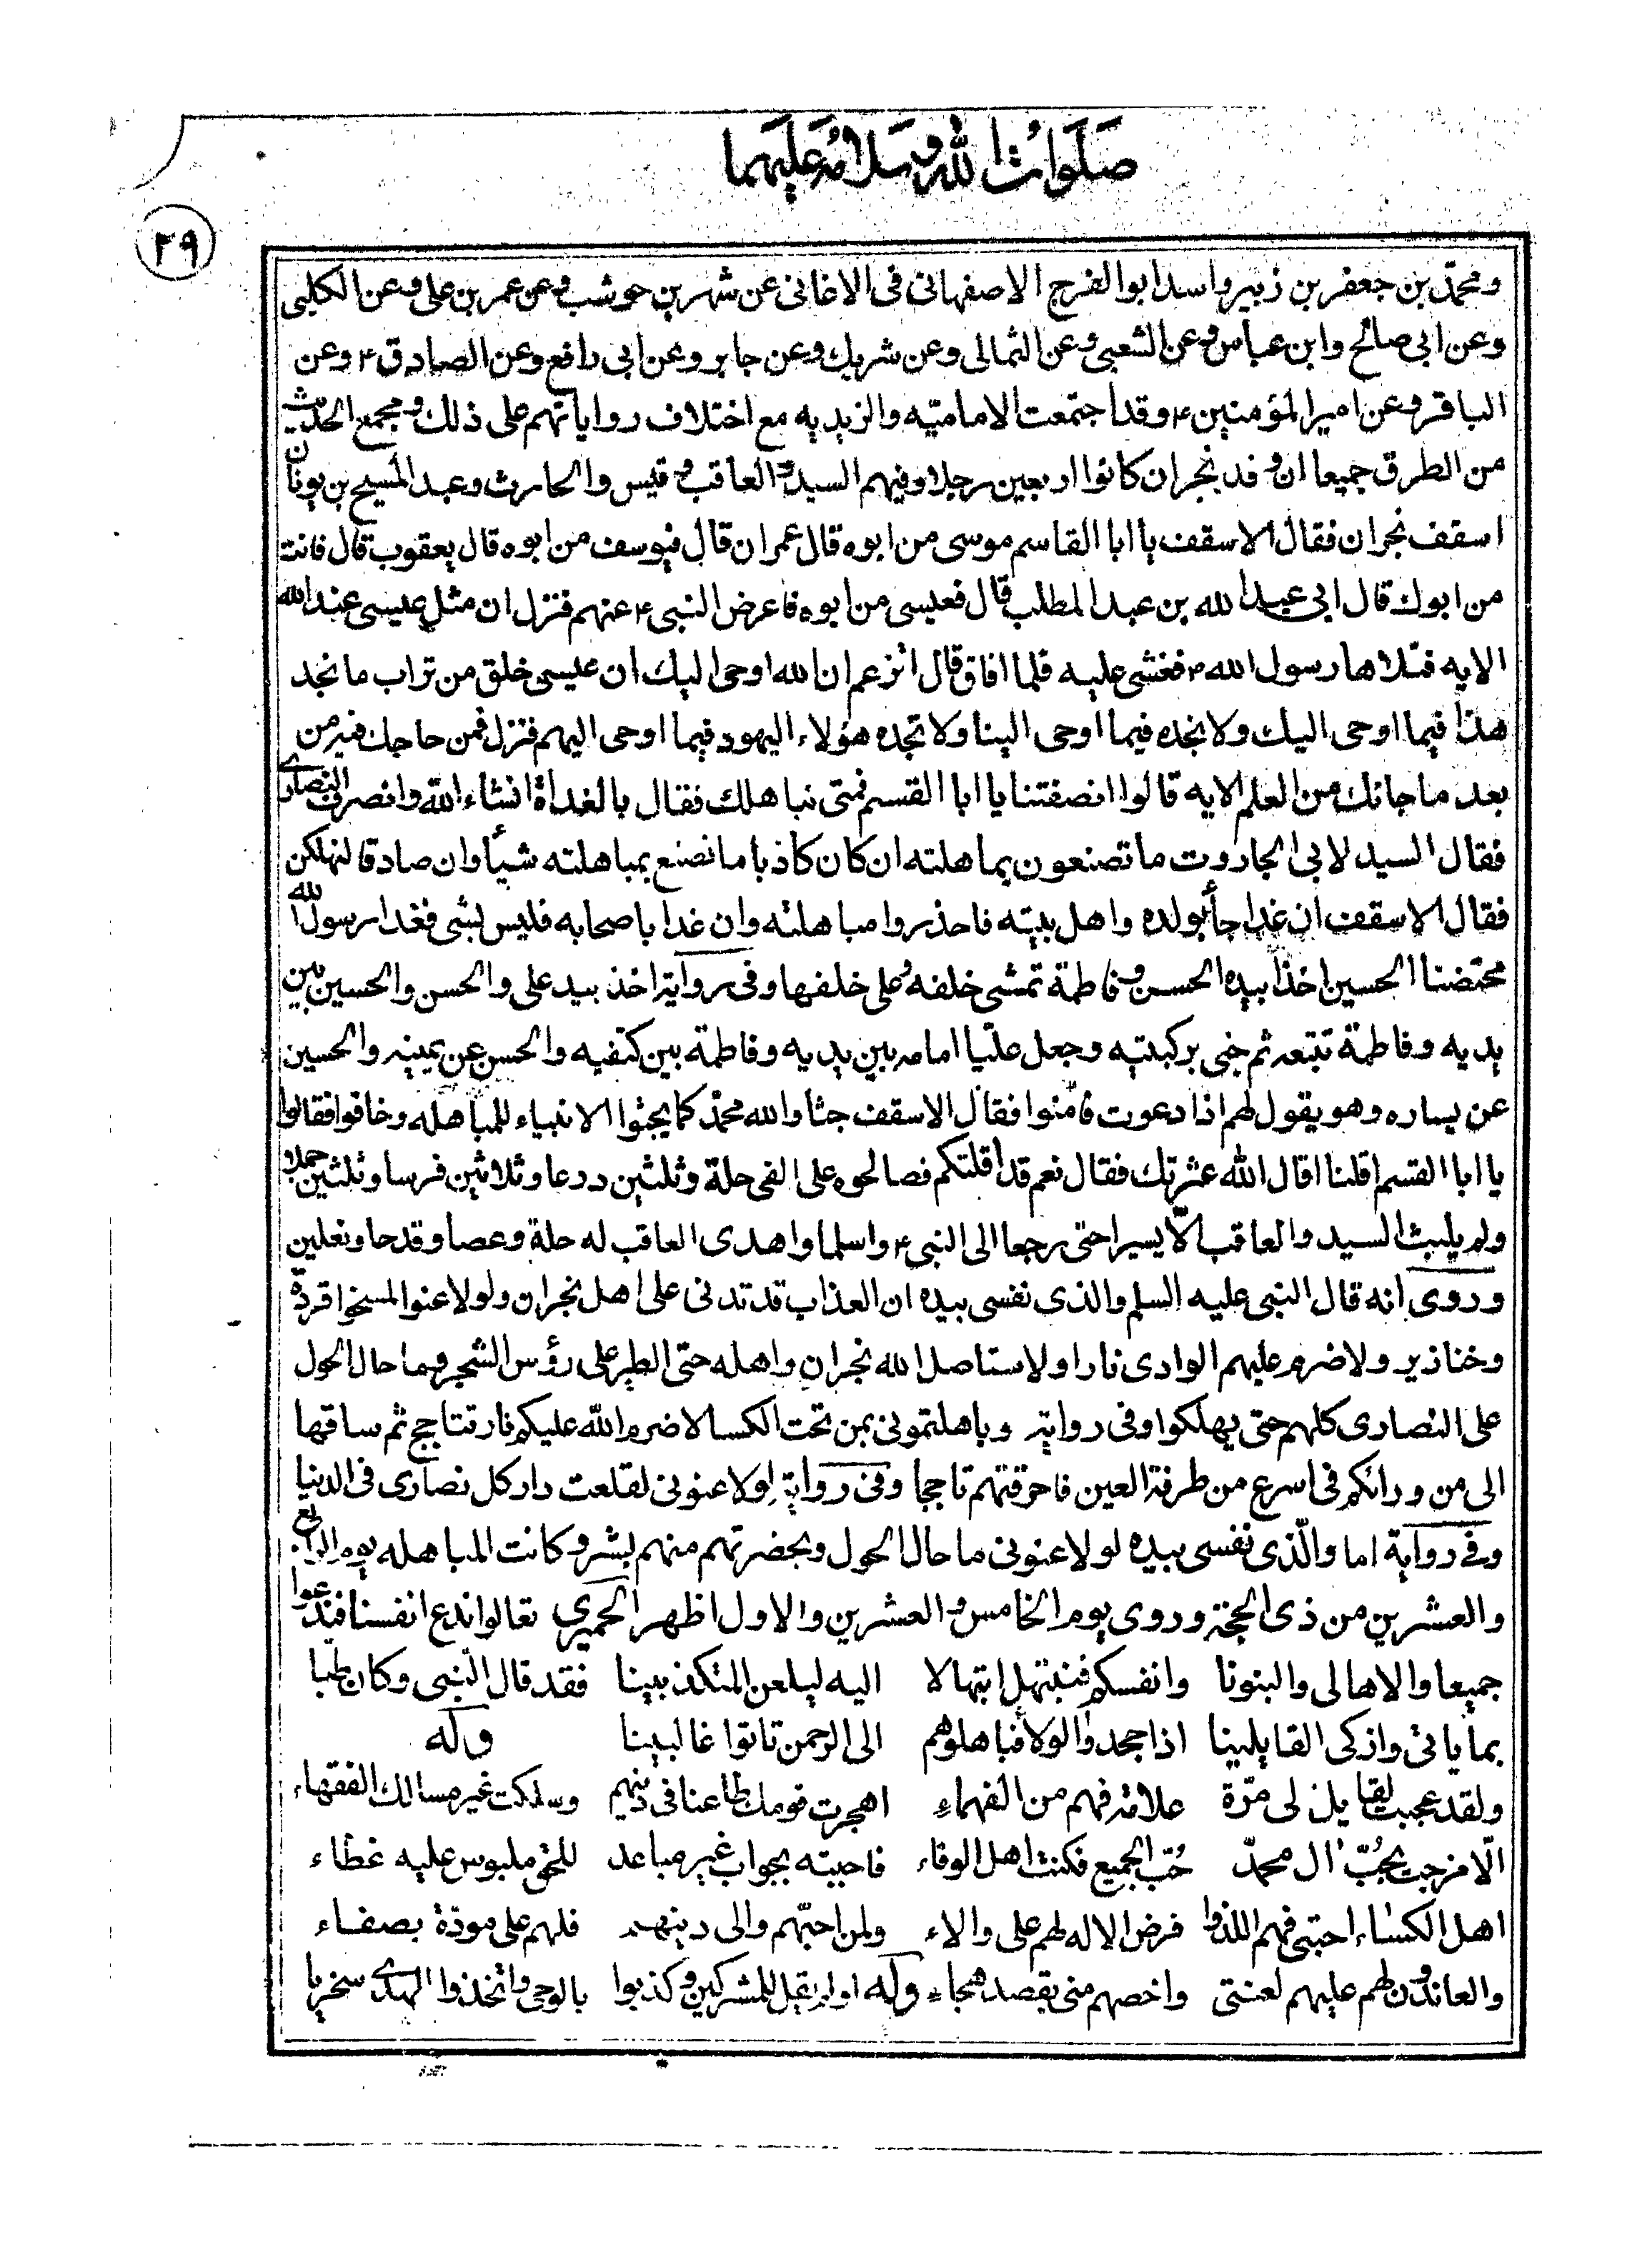 صلوات الله وسلامه عليهما
٢٩
ومحمد بن جعفر بن زبير واسد ابو الفرج الاصفهانى فى الاغانى عن شهر بن حوشب وعن عمر بن على وعن الكلبى
وعن ابى صالح وابن عباس وعن الشعبى وعن الثمالى وعن شريك وعن جابر وعن ابى رافع وعن الصادق ٤ وعن
الباقر وعن امير المؤمنين ٤ وقد اجتمعت الامامية والزيديه مع اختلاف رواياتهم على ذلك ومجمع الحديث
من الطرق جميعا ان وفد نجران كانوا اربعين رجلا وفيهم السيد والعاقب وقيس والحارث وعبد المسيح بن يونان
اسقف نجران فقال الاسقف يا ابا القاسم موسى من ابوه قال عمران قال فيوسف من ابوه قال يعقوب قال فانت
من ابوك قال ابى عبد الله بن عبد المطلب قال فعيسى من ابوه فاعرض النبى ٤ عنهم فنزل ان مثل عيسى عند الله
الايه فتلاها رسول الله ٤ فغشى عليه فلما افاق قال اتزعم ان الله اوحى اليك ان عيسى خلق من تراب ما نجد
هذا فيما اوحى اليك ولا نجده فيما اوحى الينا ولا تجده هؤلاء اليهود فيما اوحى اليهم فنزل فمن حاجك فيه من
بعد ما جائك من العلم الايه قالوا انصفتنا يا ابا القسم فمتى نباهلك فقال بالغداة انشاء الله وانصرف النصارى
فقال السيد لابى الجاروت ما تصنعون بمباهلته ان كان كاذبا ما نصنع بمباهلته شيأ وان صادقا لنهلكن
فقال الاسقف ان غدا جأ بولده واهل بيته فاحذروا مباهلته وان غدا باصحابه فليس بشى فغدا رسول الله
محتضنا الحسين اخذا بيده الحسن وفاطمة تمشى خلفه وعلى خلفها وفى رواية اخذ بيد على والحسن والحسين بين
يديه وفاطمة تتبعه ثم جثى بركبتيه وجعل عليا امامه بين يديه وفاطمة بين كتفيه والحسن عن يمينه والحسين
عن يساره وهو يقول لهم اذا دعوت فأمنوا فقال الاسقف جثا والله محمد كما يجثوا الانبياء للمباهله وخافوا فقالوا
يا ابا القسم اقلنا اقال الله عثرتك فقال نعم قد اقلتكم فصالحوه على الفى حلة وثلثين درعا وثلاثين فرسا وثلثين جملا
ولم يلبث السيد والعاقب الا يسيرا حتى رجعا الى النبى ٤ واسلما واهدى العاقب له حلة وعصا وقدحا ونعلين
وروى انه قال النبى عليه السلم والذى نفسى بيده ان العذاب قد تدنى على اهل نجران ولو لاعنوا لمسخوا قردة
وخنازير ولاضرم عليهم الوادى نارا ولاستاصل الله نجران واهله حتى الطير على رؤس الشجر وما حال الحول
على النصارى كلهم حتى يهلكوا وفى رواية وباهلتمونى بمن تحت الكسا لاضرم الله عليكم نار تتاجج ثم ساقها
الى من ورائكم فى اسرع من طرفة العين فاحرقتهم تاججا وفى رواية لولاعنونى لقلعت دار كل نصارى فى الدنيا
وفى رواية اما والذى نفسى بيده لو لاعنونى ما حال الحول وبحضرتهم منهم بشر وكانت المباهله يوم الرابع
والعشرين من ذى الحجة وروى يوم الخامس والعشرين والاول اظهر الحميرى تعالوا ندع انفسنا فندعوا
جميعا والاهالى والبنونا وانفسكم فنبتهل ابتهالا اليه ليلعن المتكذبينا فقد قال النبى وكان طبا
بما ياتى وازكى القايلينا اذا جحدوا الولا فباهلوهم الى الرحمن تاتوا غالبينا وله
ولقد عجبت لقايل لى مرة علامة فهم من الفهماء اهجرت قومك طاعنا فى دينهم وسلكت غير مسالك الفقهاء
الا مزجت بحب ال محمد حب الجميع فكنت اهل الوفاء فاجبته بجواب غير مباعد للحق ملبوس عليه غطاء
اهل الكساء احبتى فهم اللذوا فرض الاله لهم على والاء ولمن احبهم والى دينهم فلهم على مودة بصفاء
والعاندون لهم عليهم لعنتى واخصهم منى بقصد هجاء وله اولم يقل للمشركين وكذبوا بالوحى واتخذوا الهدى سخريا